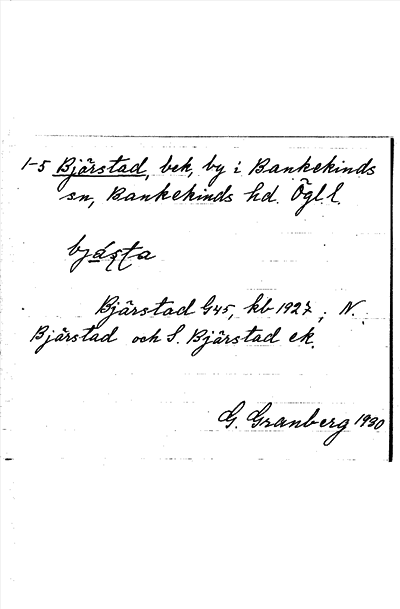 1-5 Bjärstad, bek, by i Bankekinds
sn, Bankekinds hd. Ögl l.
bjást̜a
Bjärstad G45, kb 1927; N.
Bjärstad och S. Bjärstad ek.
G. Granberg 1930